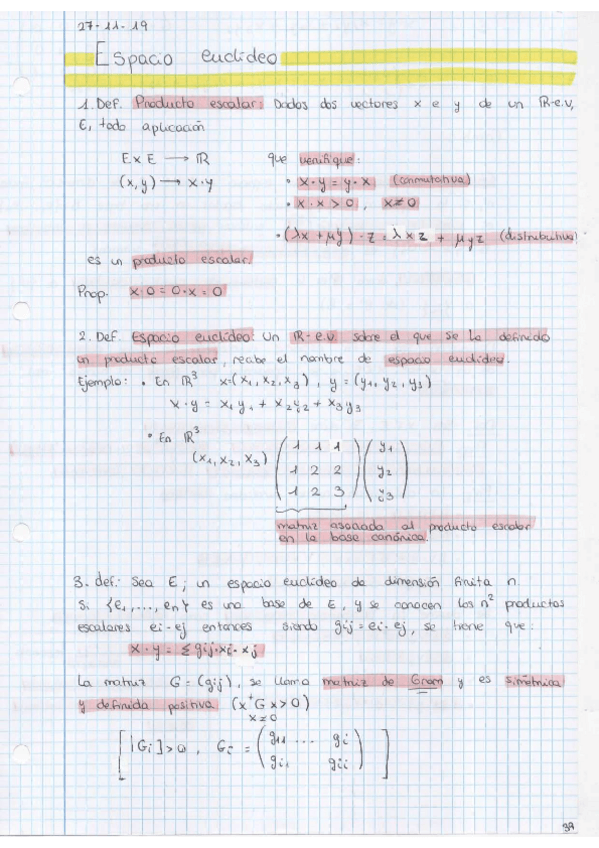 27-11-19
Espacio euclídeo
1. Def. Producto escalar: Dados dos vectores x e y de un R-e.v,
E, todo aplicación
E x E → R que verifique:
(x, y) → x·y • x·y = y·x (conmutativa)
• x·x > 0, x≠0
• (λx + μy)·z = λxz + μyz (distributiva)
es un producto escalar.
Prop. x·0 = 0·x = 0
2. Def. Espacio euclídeo: Un R-e.v. sobre el que se ha definido
un producto escalar, recibe el nombre de espacio euclídeo.
Ejemplo: • En R³ x=(x₁, x₂, x₃), y = (y₁, y₂, y₃)
x·y = x₁y₁ + x₂y₂ + x₃y₃
• En R³
(x₁, x₂, x₃) (1 1 1) (y₁)
(1 2 2) (y₂)
(1 2 3) (y₃)
matriz asociada al producto escalar
en la base canónica.
3. def: Sea E; un espacio euclídeo de dimensión finita n.
Si {e₁, ..., en} es una base de E, y se conocen los n² productos
escalares ei·ej entonces siendo gij = ei·ej, se tiene que:
x·y = Σ gij·xi·xj
La matriz G = (gij), se llama matriz de Gram y es simétrica
y definida positiva (xᵗGx>0)
x≠0
[|Gi|>0, Gi = (g11 ... gi)
(gi1 gii)]
39